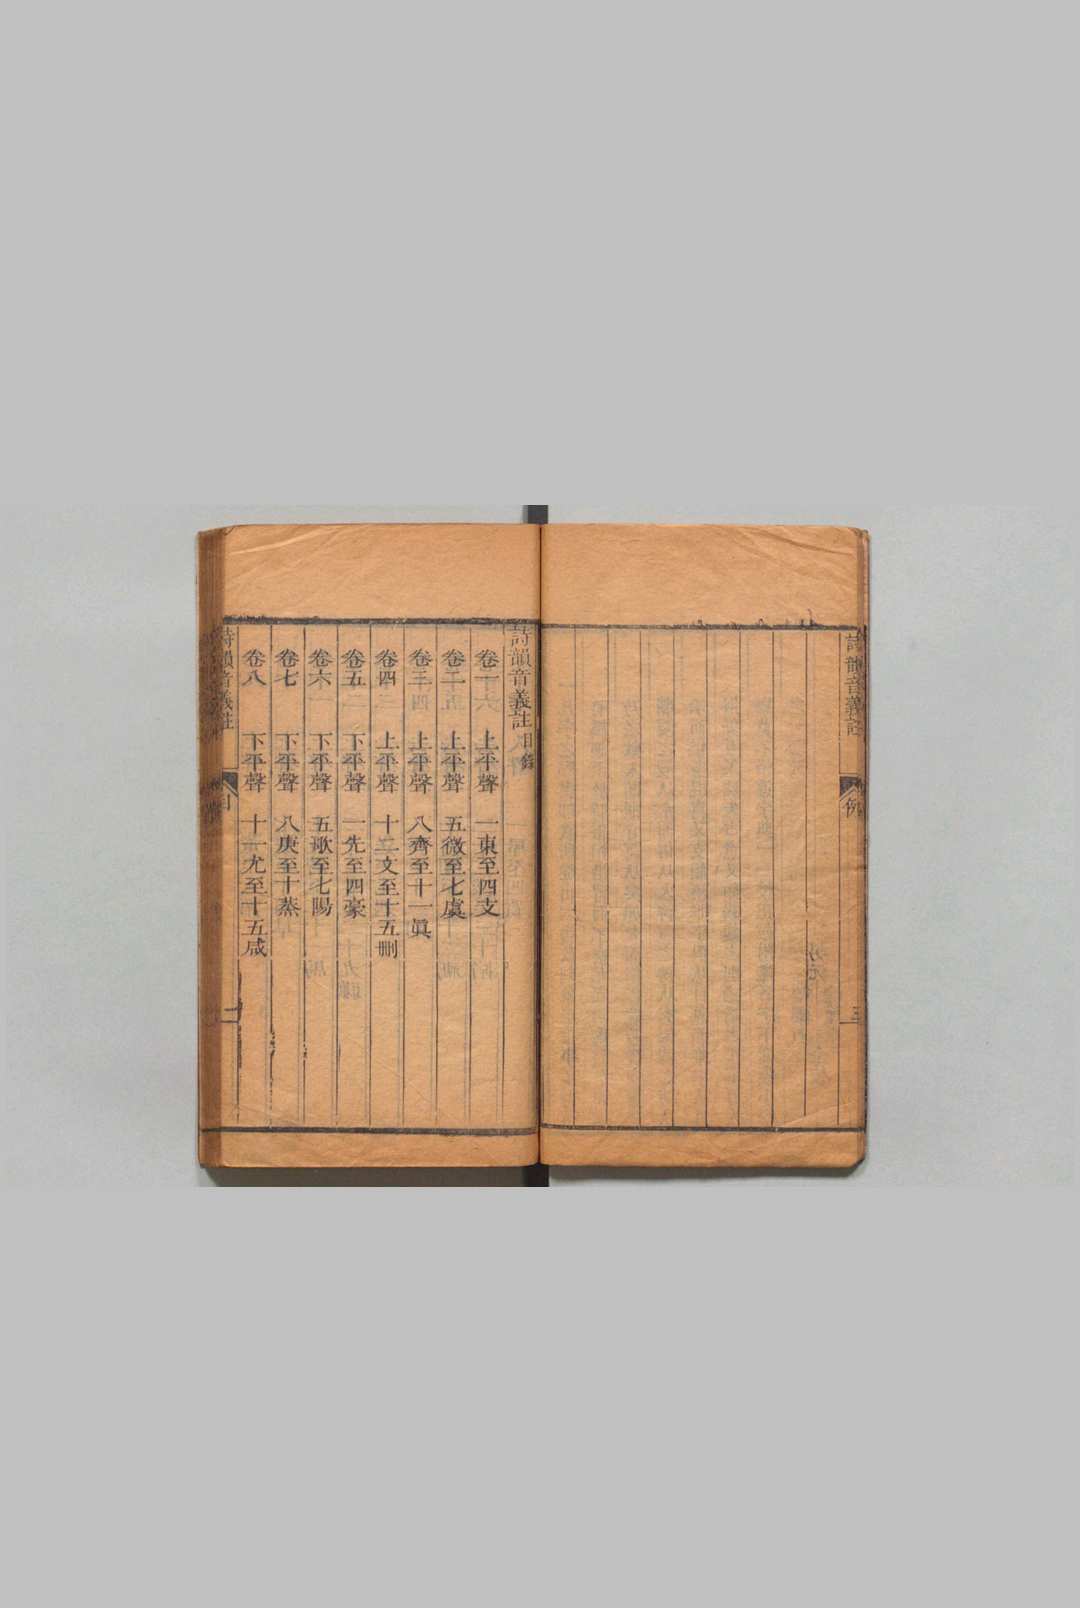 詩韻音義註
例
三
詩韻音義註目錄
卷一 上平聲 一東至四支
卷二 上平聲 五微至七虞
卷三 上平聲 八齊至十一真
卷四 上平聲 十二文至十五刪
卷五 下平聲 一先至四豪
卷六 下平聲 五歌至七陽
卷七 下平聲 八庚至十蒸
卷八 下平聲 十一尤至十五咸
詩韻音義註
目